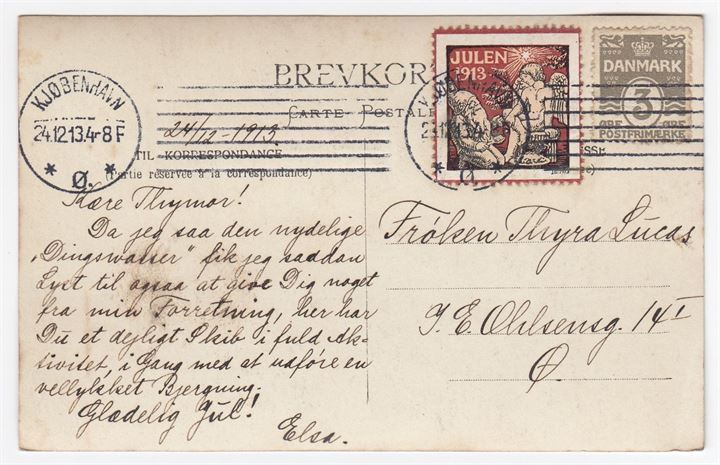 BREVKOR
CARTE POSTALE
KJØBENHAVN
24.12.13.4-8 F
* Ø. *
JULEN
1913
KJØBENHAVN
24.12.13.4-8 F
* Ø *
DANMARK
3
ØRE ØRE
POSTFRIMÆRKE
24/12-1913.
TIL KORRESPONDANCE
(Partie réservée à la correspondance)
Kære Thymor!
Da jeg saa den nydelige
„Dingswasser" fik jeg saadan
Lyst til ogsaa at give Dig noget
fra min Forretning, her har
Du et dejligt Skib i fuld Ak-
tivitet, i Gang med at udføre en
vellykket Bjergning.
Glædelig Jul!
Elsa.
Frøken Thyra Lucas
J. E. Ohlsensg. 14 I
Ø.